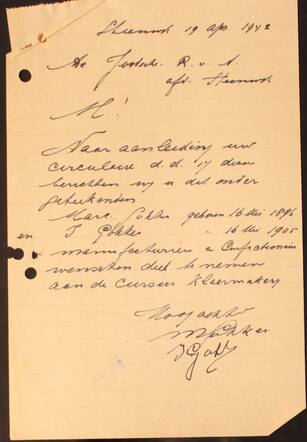 Steenwijk 19 Apr 1942
De Joodsche R. v. A.
afd. Steenwijk
M!
Naar aanleiding uw
circulaire d.d. 17 dezer
berichten wij u dat onder
getekenden
Marc. Gokkes geboren 16 Mei 1896
en I Gokkes " 16 Mei 1905
manufacturier & Confectionair
wenschen deel te nemen
aan de Cursus Kleermakers
Hoogacht
M Gokkes
I Gokkes